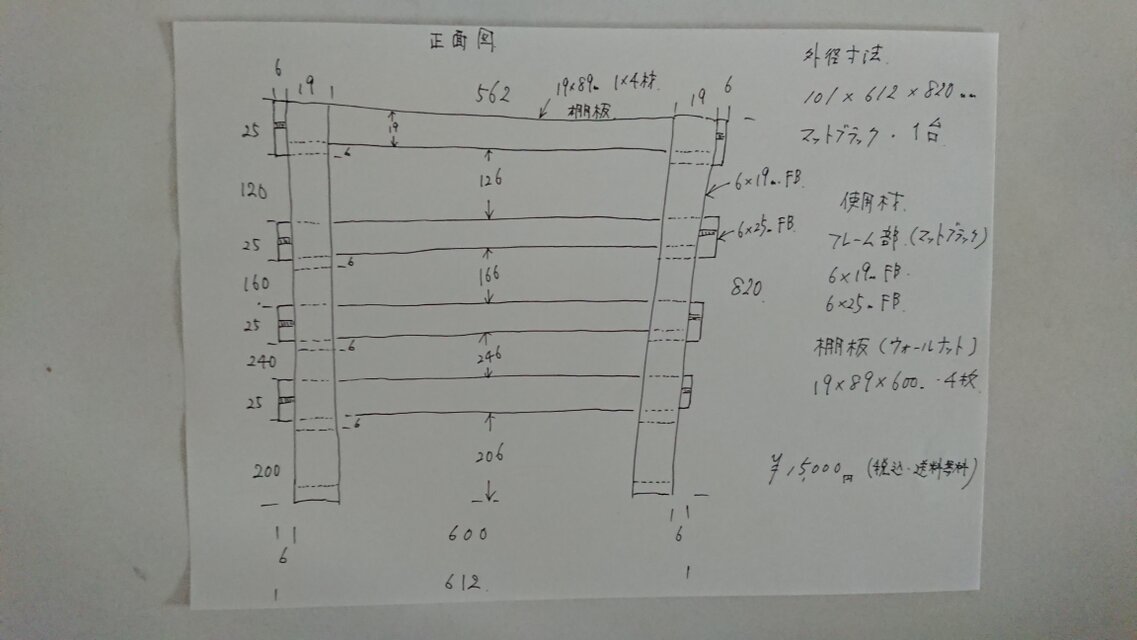 正面図
6
19
562
19×89㎜ 1×4材
棚板
19
6
25
19
6
126
120
25
6
166
160
25
6
246
240
25
6
206
200
6×19㎜ FB
6×25㎜ FB
820
600
6
6
612
外径寸法
101×612×820㎜
マットブラック・1台
使用材
フレーム部(マットブラック)
6×19㎜ FB
6×25㎜ FB
棚板(ウォールナット)
19×89×600㎜・4枚
¥15,000円(税込・送料無料)